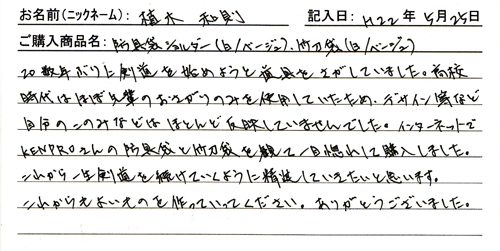 お名前(ニックネーム): 植木 和則 記入日: H22年 5月25日
ご購入商品名: 防具袋ショルダー(白/ベージュ)、竹刀袋(白/ベージュ)
20数年ぶりに剣道を始めようと道具をさがしていました。高校
時代はほぼ先輩のおさがりのみを使用していたため、デザイン等など
自分のこのみなどはほとんど反映していませんでした。インターネットで
KENPROさんの防具袋と竹刀袋を観て一目惚れして購入しました。
これから一生剣道を続けていくように精進していきたいと思います。
これからもよいものを作っていってください。ありがとうございました。